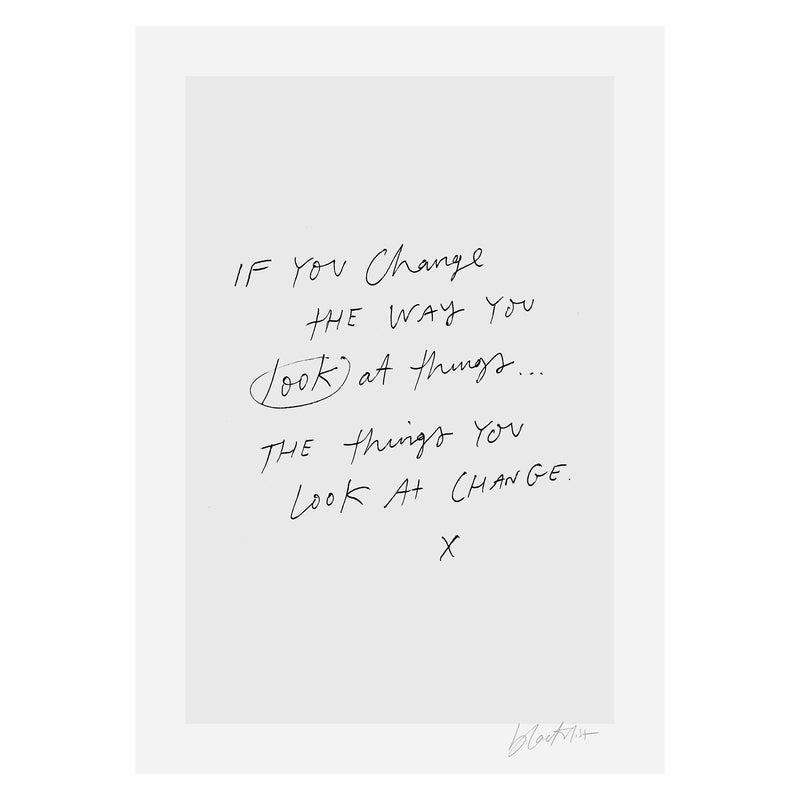 IF YOU Change
THE WAY YOU
look at things...
THE things YOU
LOOK At CHANGE.
X
blacklist